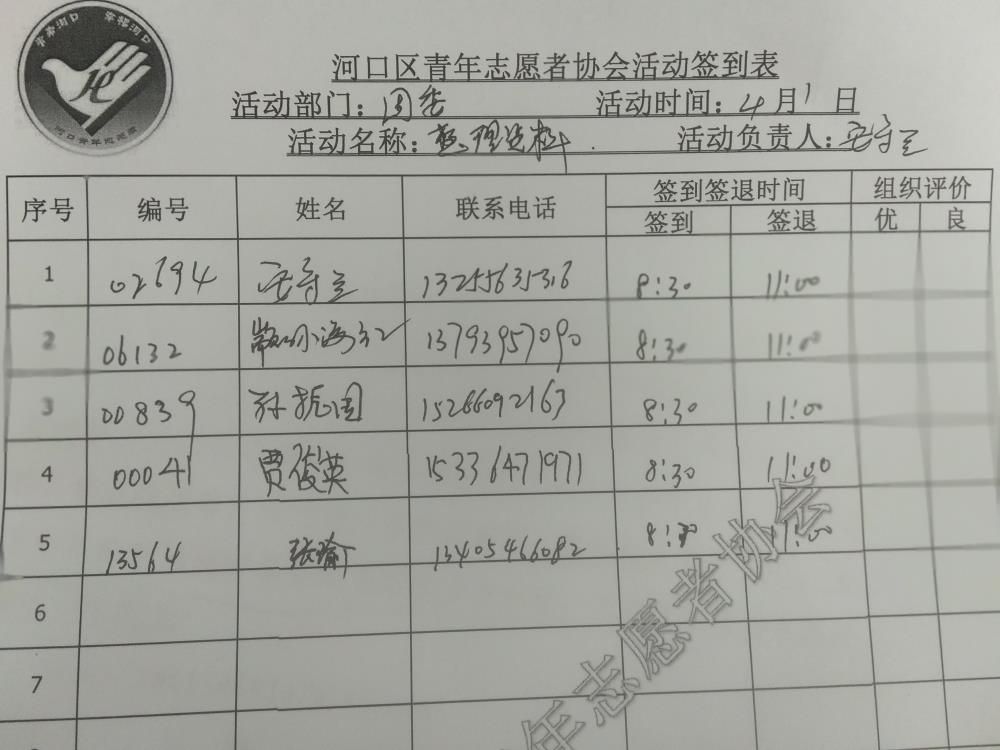 青春河口 幸福河口
河口青年志愿者
河口区青年志愿者协会活动签到表
活动部门: 活动时间:4月1日
活动名称:整理资料. 活动负责人:
序号 编号 姓名 联系电话 签到签退时间 组织评价
签到 签退 优 良
1 02694 13255635316 8:30 11:00
2 06132 13793957090 8:30 11:00
3 00839 孙振国 15266092163 8:30 11:00
4 00041 贾俊英 15336471971 8:30 11:00
5 13564 张瑜 13405466082 8:30 11:00
6
7
年志愿者协会